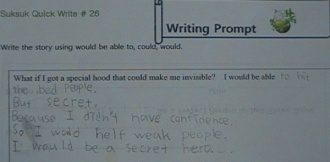 Suksuk Quick Write # 26
Writing Prompt
Write the story using would be able to, could, would.
What if I got a special hood that could make me invisible? I would be able to hit
the bad people.
But secret,
Because I didn't have confidence.
So I would help weak people.
I would be a secret hero...